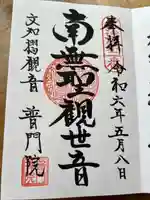 奉拝 令和六年五月八日
南無聖觀世音
文知摺觀音 普門院